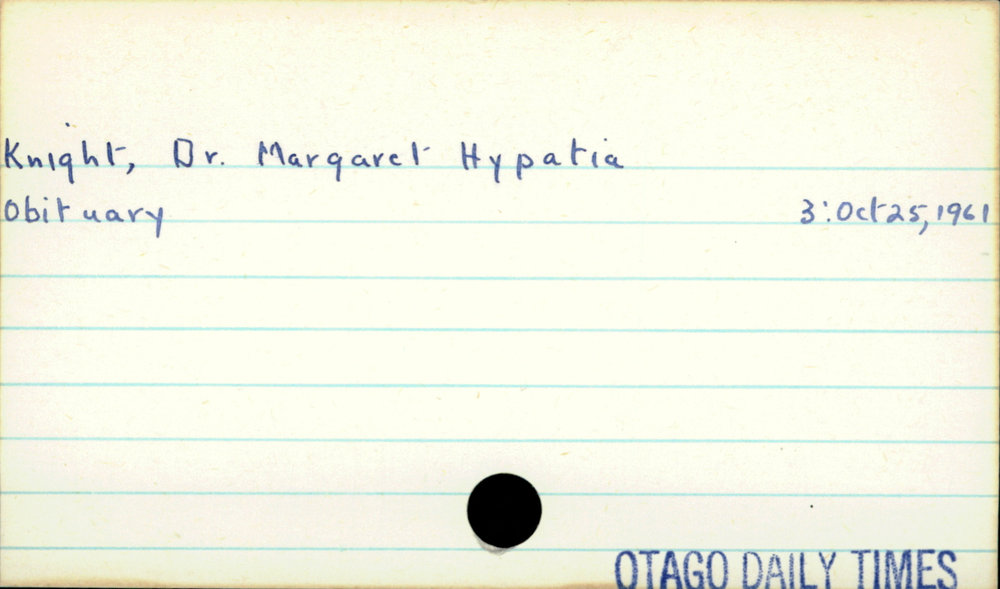 Knight, Dr. Margaret Hypatia
Obituary 3:Oct 25, 1961
OTAGO DAILY TIMES